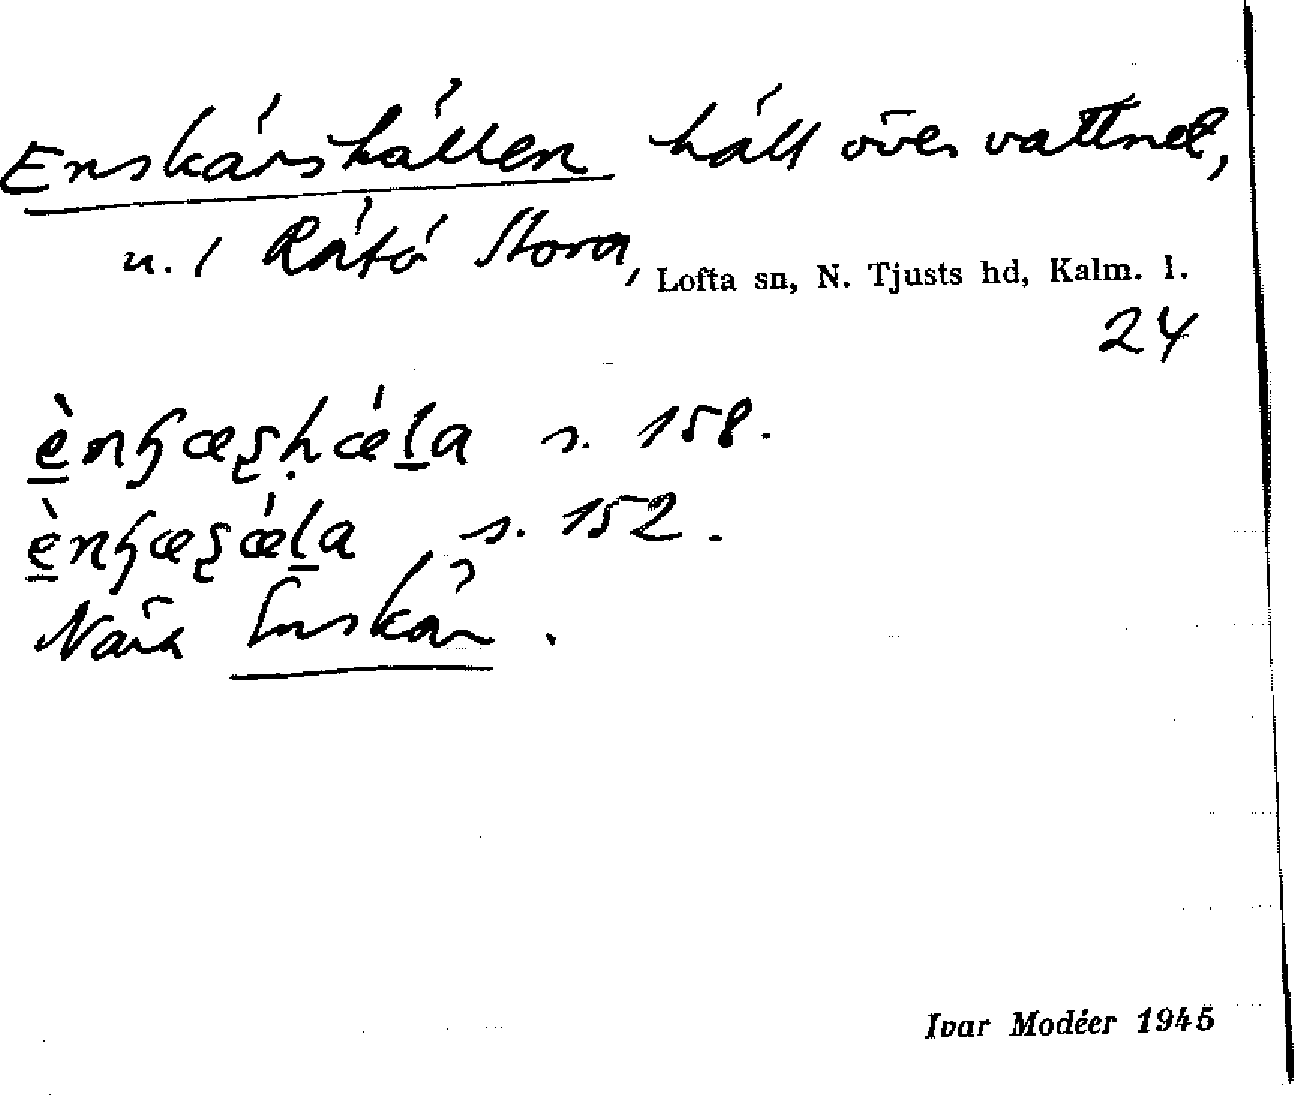 Enskärshällen häll över vattnet,
u. / Rätö Stora, Lofta sn, N. Tjusts hd, Kalm. l.
24
s. 158.
s. 152.
Nära Enskär.
Ivar Modéer 1945